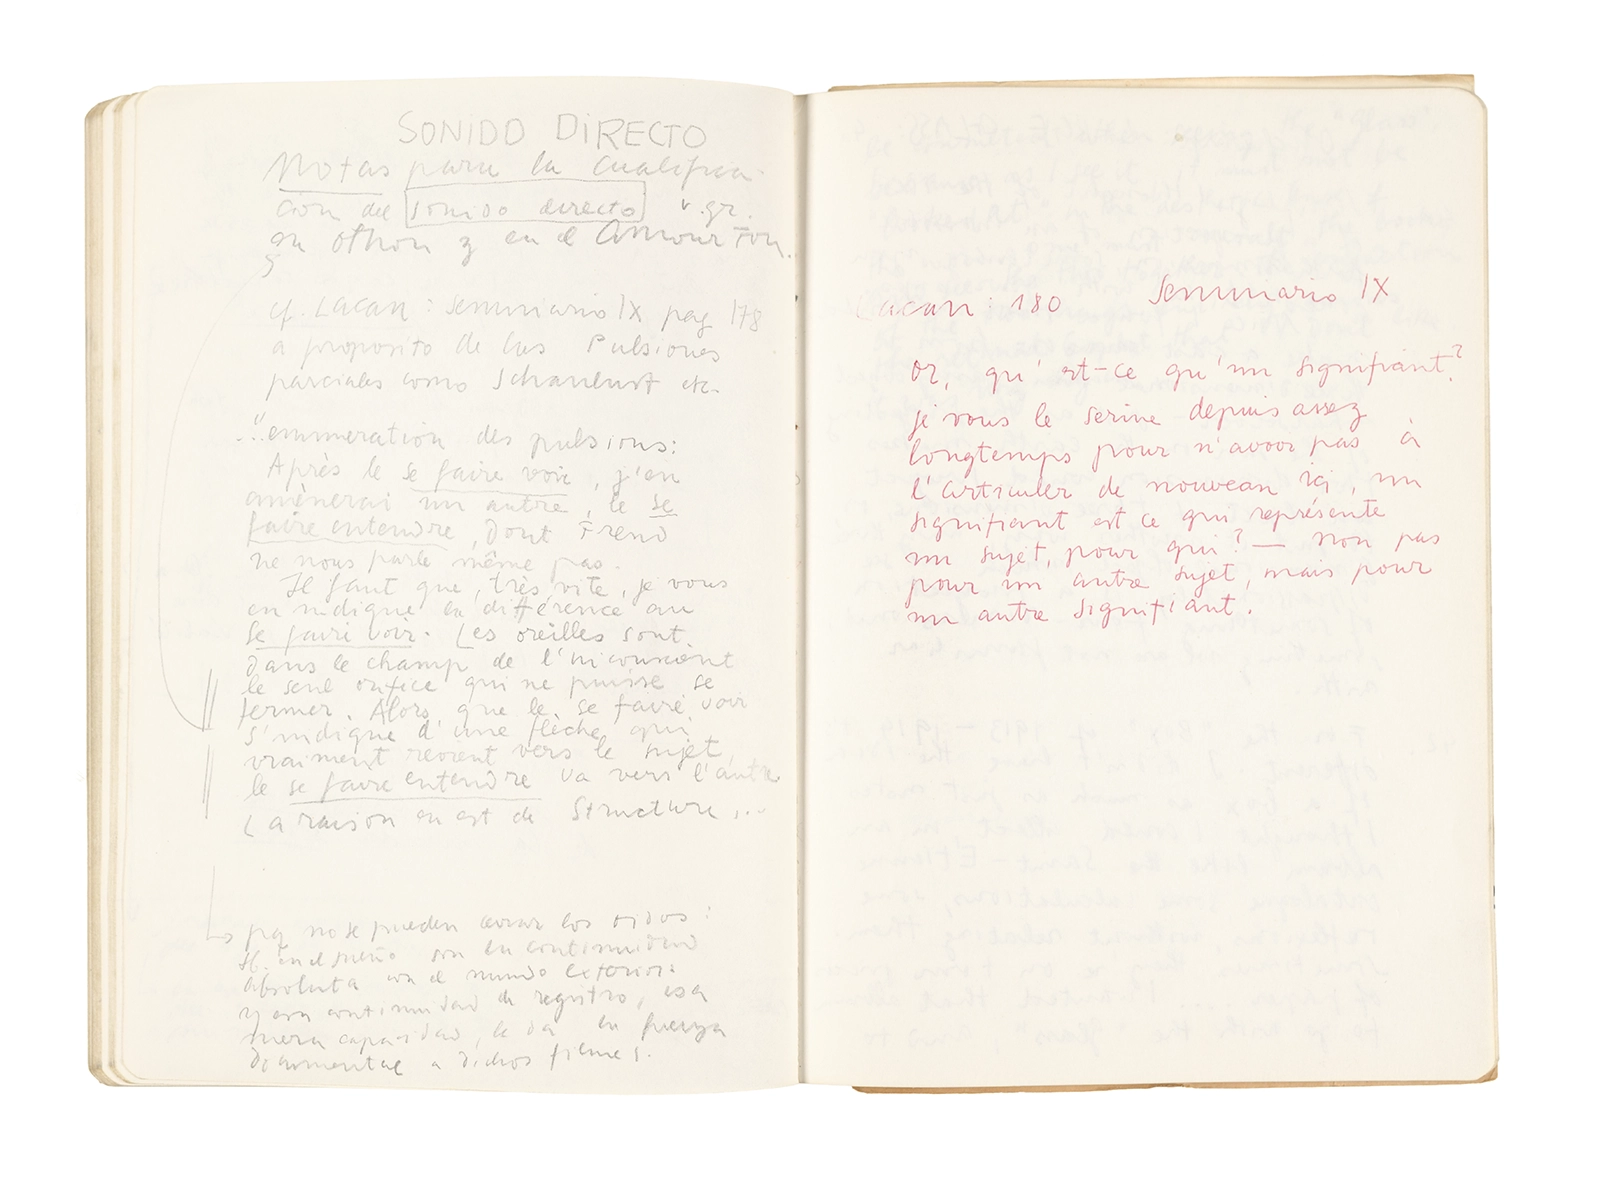 SONIDO DIRECTO
Notas para la cualifica-
ción del sonido directo v.gr.
en Othon y en el Amour Fou.
cf. Lacan: Seminario IX pag 178
a proposito de las Pulsiones
parciales como Schaulust etc.
..."enumeration des pulsions:
Après le se faire voir, j'en
amènerai un autre, le se
faire entendre, dont Freud
ne nous parle même pas.
Il faut que, très vite, je vous
en indique en différence au
se faire voir. Les oreilles sont
dans le champ de l'inconscient
le seul orifice qui ne puisse se
fermer. Alors que le se faire voir
s'indique d'une flèche qui
vraiment revient vers le sujet,
le se faire entendre va vers l'autre
La raison en est de structure...
pq no se pueden cerrar los oidos:
en el sueño son la continuidad
absoluta con el mundo exterior:
y esa continuidad de registro, esa
mera capacidad, le da la fuerza
documental a dichos filmes.
Lacan: 180 Seminario IX
or, qu'est-ce qu'un signifiant?
je vous le serine depuis assez
longtemps pour n'avoir pas à
l'articuler de nouveau ici, un
signifiant est ce qui représente
un sujet, pour qui? — non pas
pour un autre sujet, mais pour
un autre signifiant.